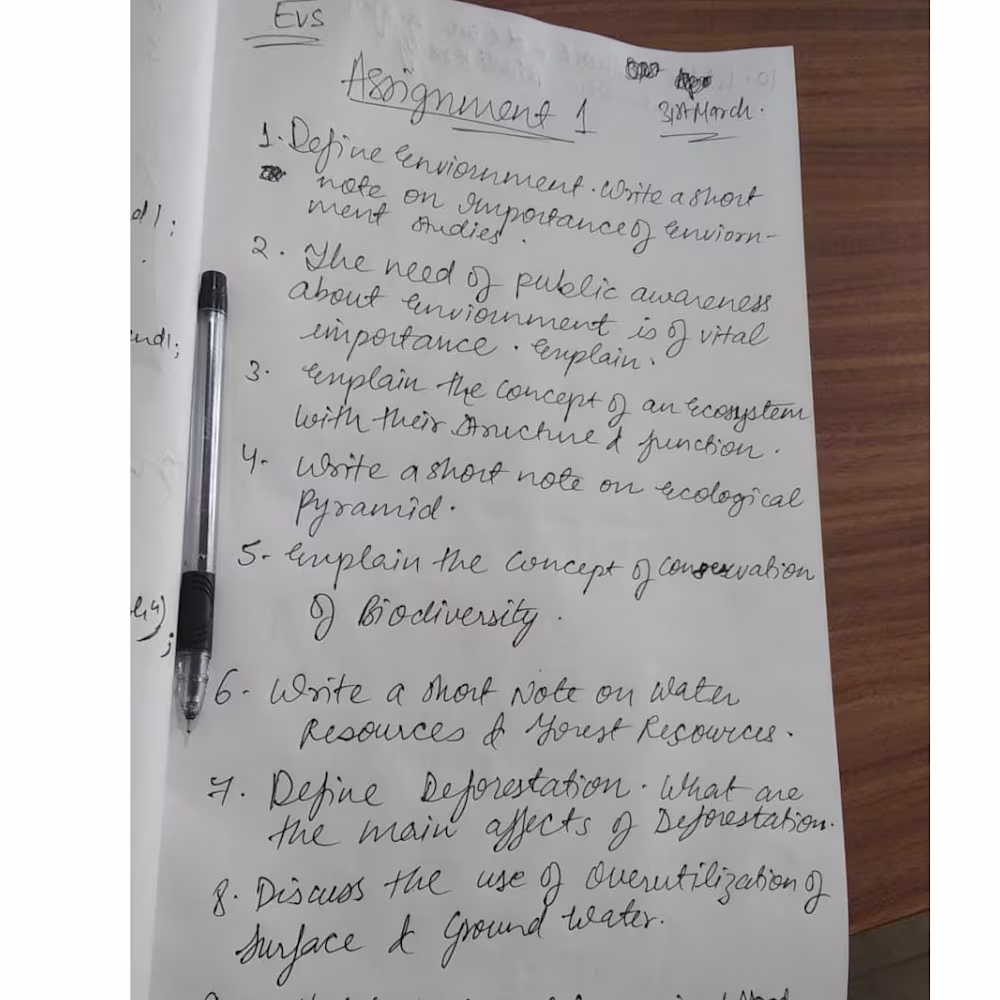 EVS
Assignment 1
31st March.
1. Define Enviornment. Write a short
note on Importance of Enviorn-
ment Studies.
2. The need of public awareness
about Enviornment is of vital
importance. Explain.
3. Explain the concept of an Ecosystem
with their Structure & function.
4- Write a short note on Ecological
Pyramid.
5- Explain the concept of conservation
of Biodiversity.
6- Write a Short Note on Water
Resources & Forest Resources.
7. Define Deforestation. What are
the main affects of Deforestation.
8. Discuss the use of Overutilization of
Surface & Ground Water.